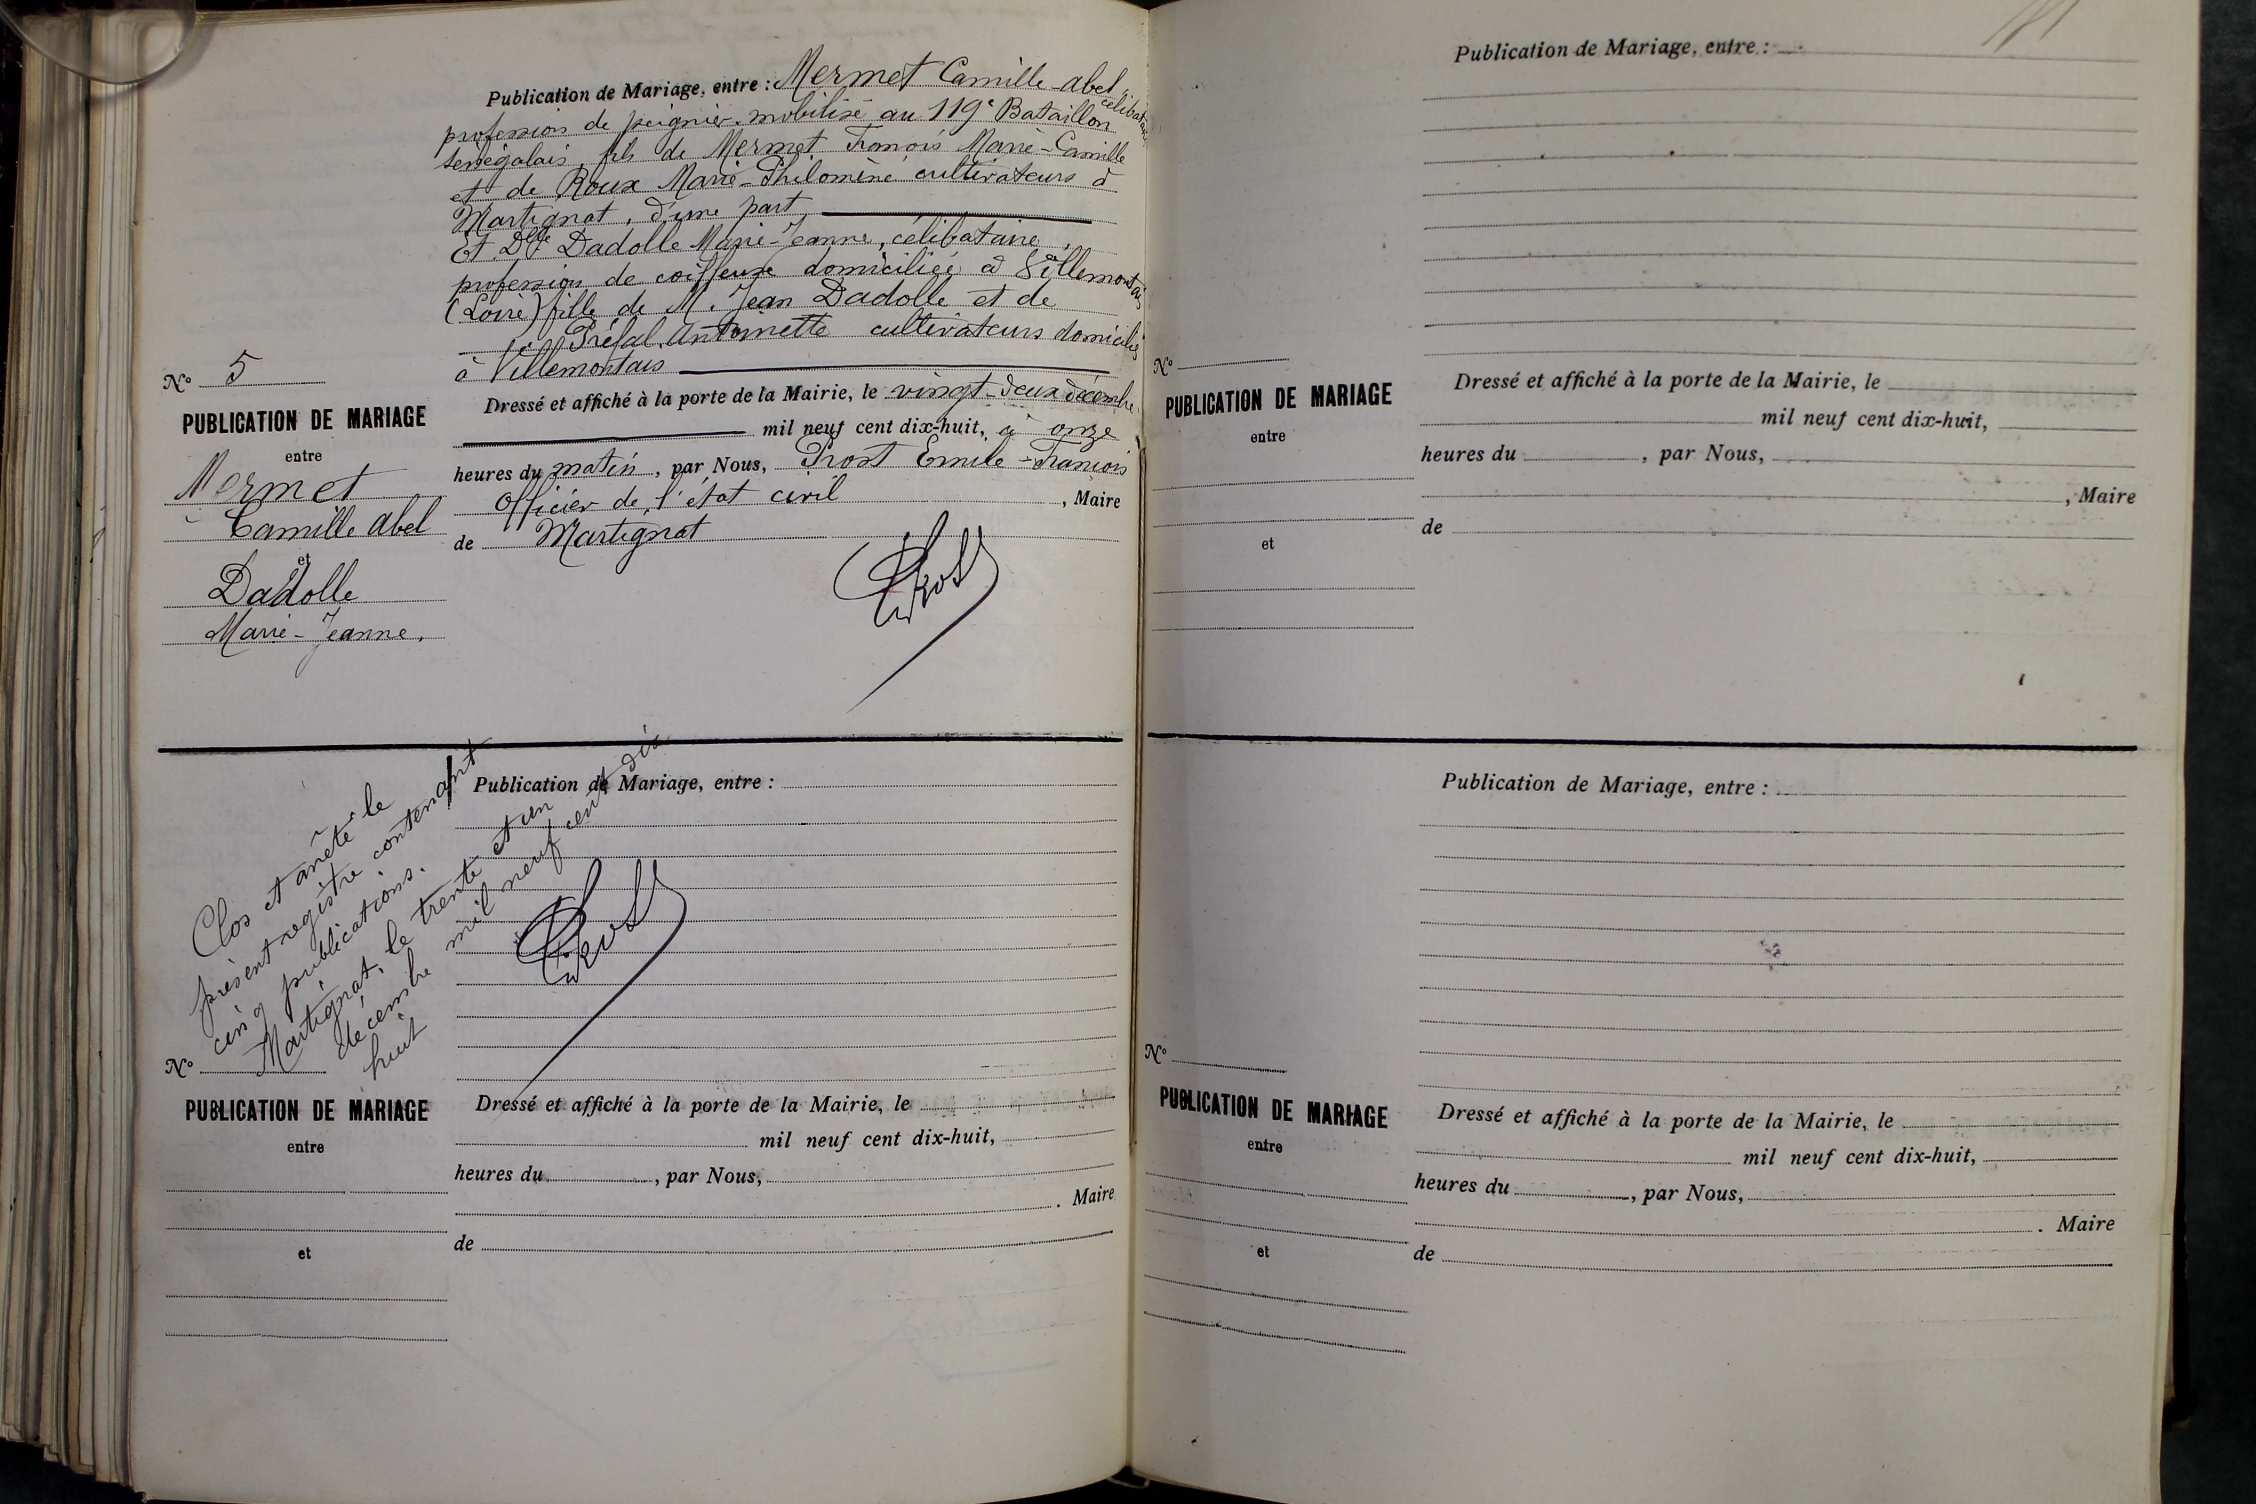 Publication de Mariage, entre : Mermet Camille Abel, célibataire
profession de peignier mobilisé au 119e Bataillon
senegalais, fils de Mermet François Marie-Camille
et de Roux Marie-Philomène cultivateurs à
Martignat, d'une part
Et Delle Dadolle Marie-Jeanne, célibataire,
profession de coiffeuse domiciliée à Villemontais
(Loire) fille de M. Jean Dadolle et de
Préfal Antoinette cultivateurs domiciliés
à Villemontais
Dressé et affiché à la porte de la Mairie, le vingt-deux décembre
mil neuf cent dix-huit, à onze
heures du matin, par Nous, Prost Emile-François
Officier de l'état civil, Maire
de Martignat
Prost
No 5
PUBLICATION DE MARIAGE
entre
Mermet
Camille Abel
et
Dadolle
Marie-Jeanne.
Clos et arrêté le
présent registre contenant
cinq publications.
Martignat, le trente et un
décembre mil neuf cent dix
huit
Prost
Publication de Mariage, entre :
No
PUBLICATION DE MARIAGE
entre
et
Dressé et affiché à la porte de la Mairie, le
mil neuf cent dix-huit,
heures du , par Nous,
. Maire
de
Publication de Mariage, entre :
No
PUBLICATION DE MARIAGE
entre
et
Dressé et affiché à la porte de la Mairie, le
mil neuf cent dix-huit,
heures du , par Nous,
, Maire
de
Publication de Mariage, entre :
No
PUBLICATION DE MARIAGE
entre
et
Dressé et affiché à la porte de la Mairie, le
mil neuf cent dix-huit,
heures du , par Nous,
. Maire
de